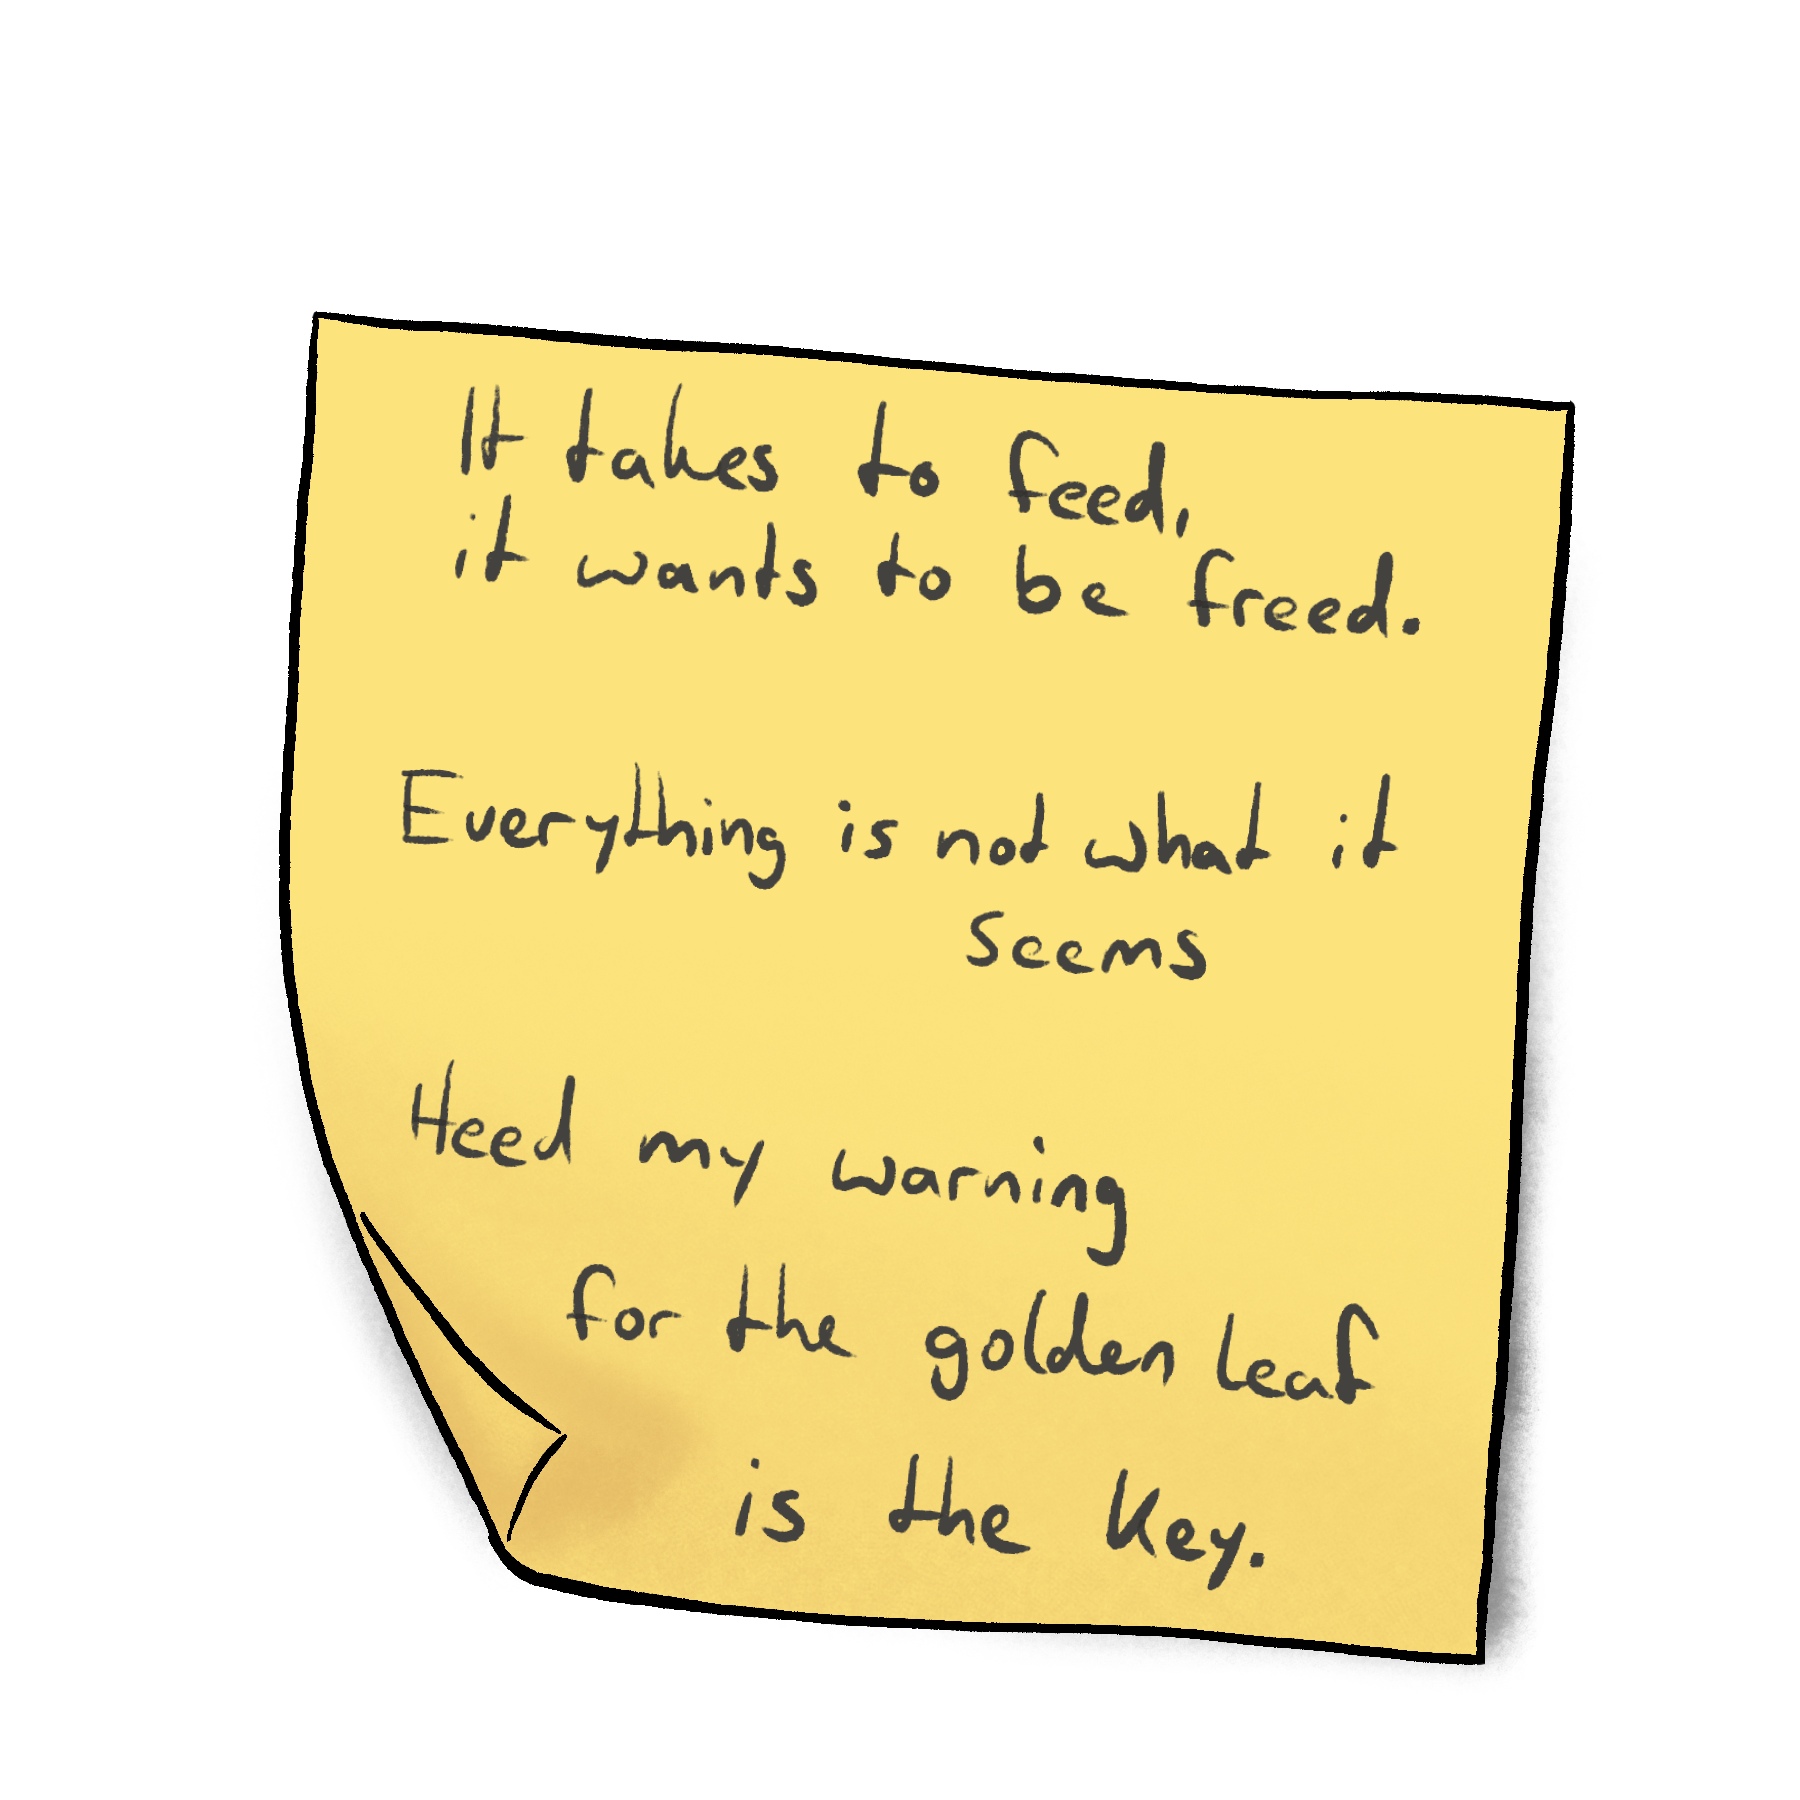 It takes to feed,
it wants to be freed.
Everything is not what it
seems
Heed my warning
for the golden leaf
is the key.